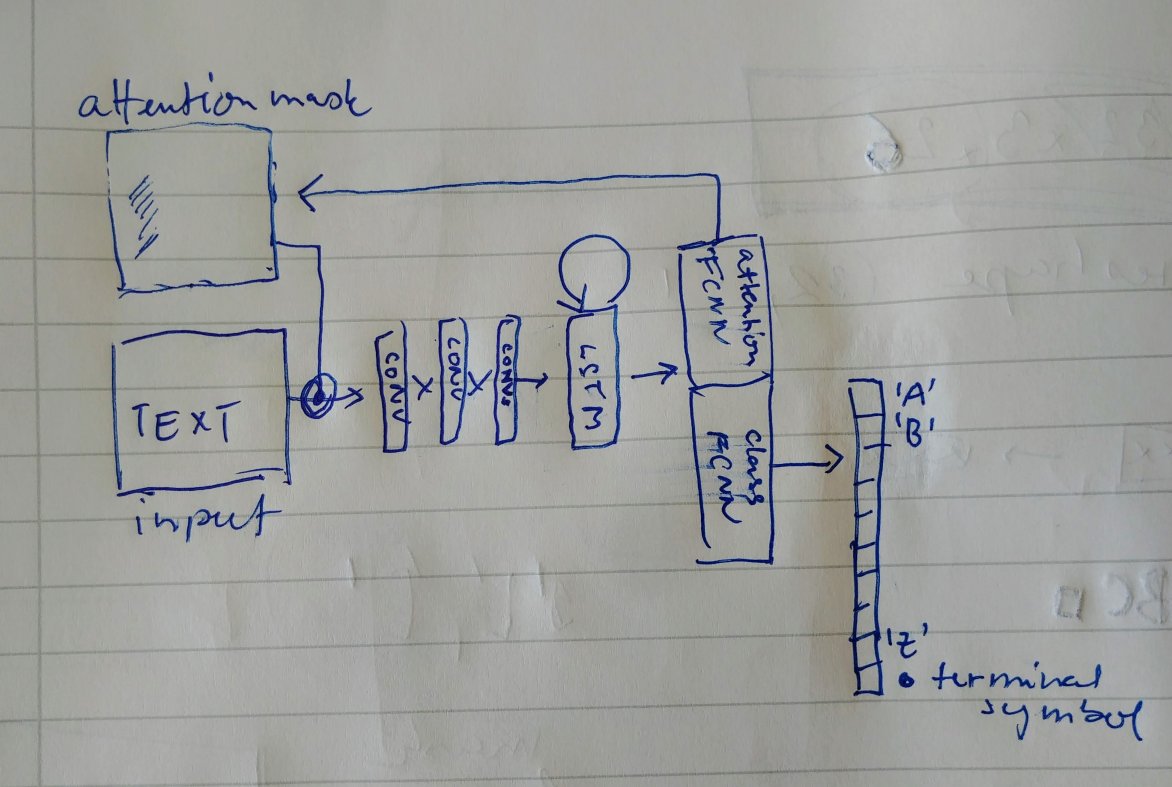 attention mask
TEXT
input
CONV
CONV
CONV
LSTM
attention
FCNN
class
FCNN
'A'
'B'
'Z'
• terminal
symbol